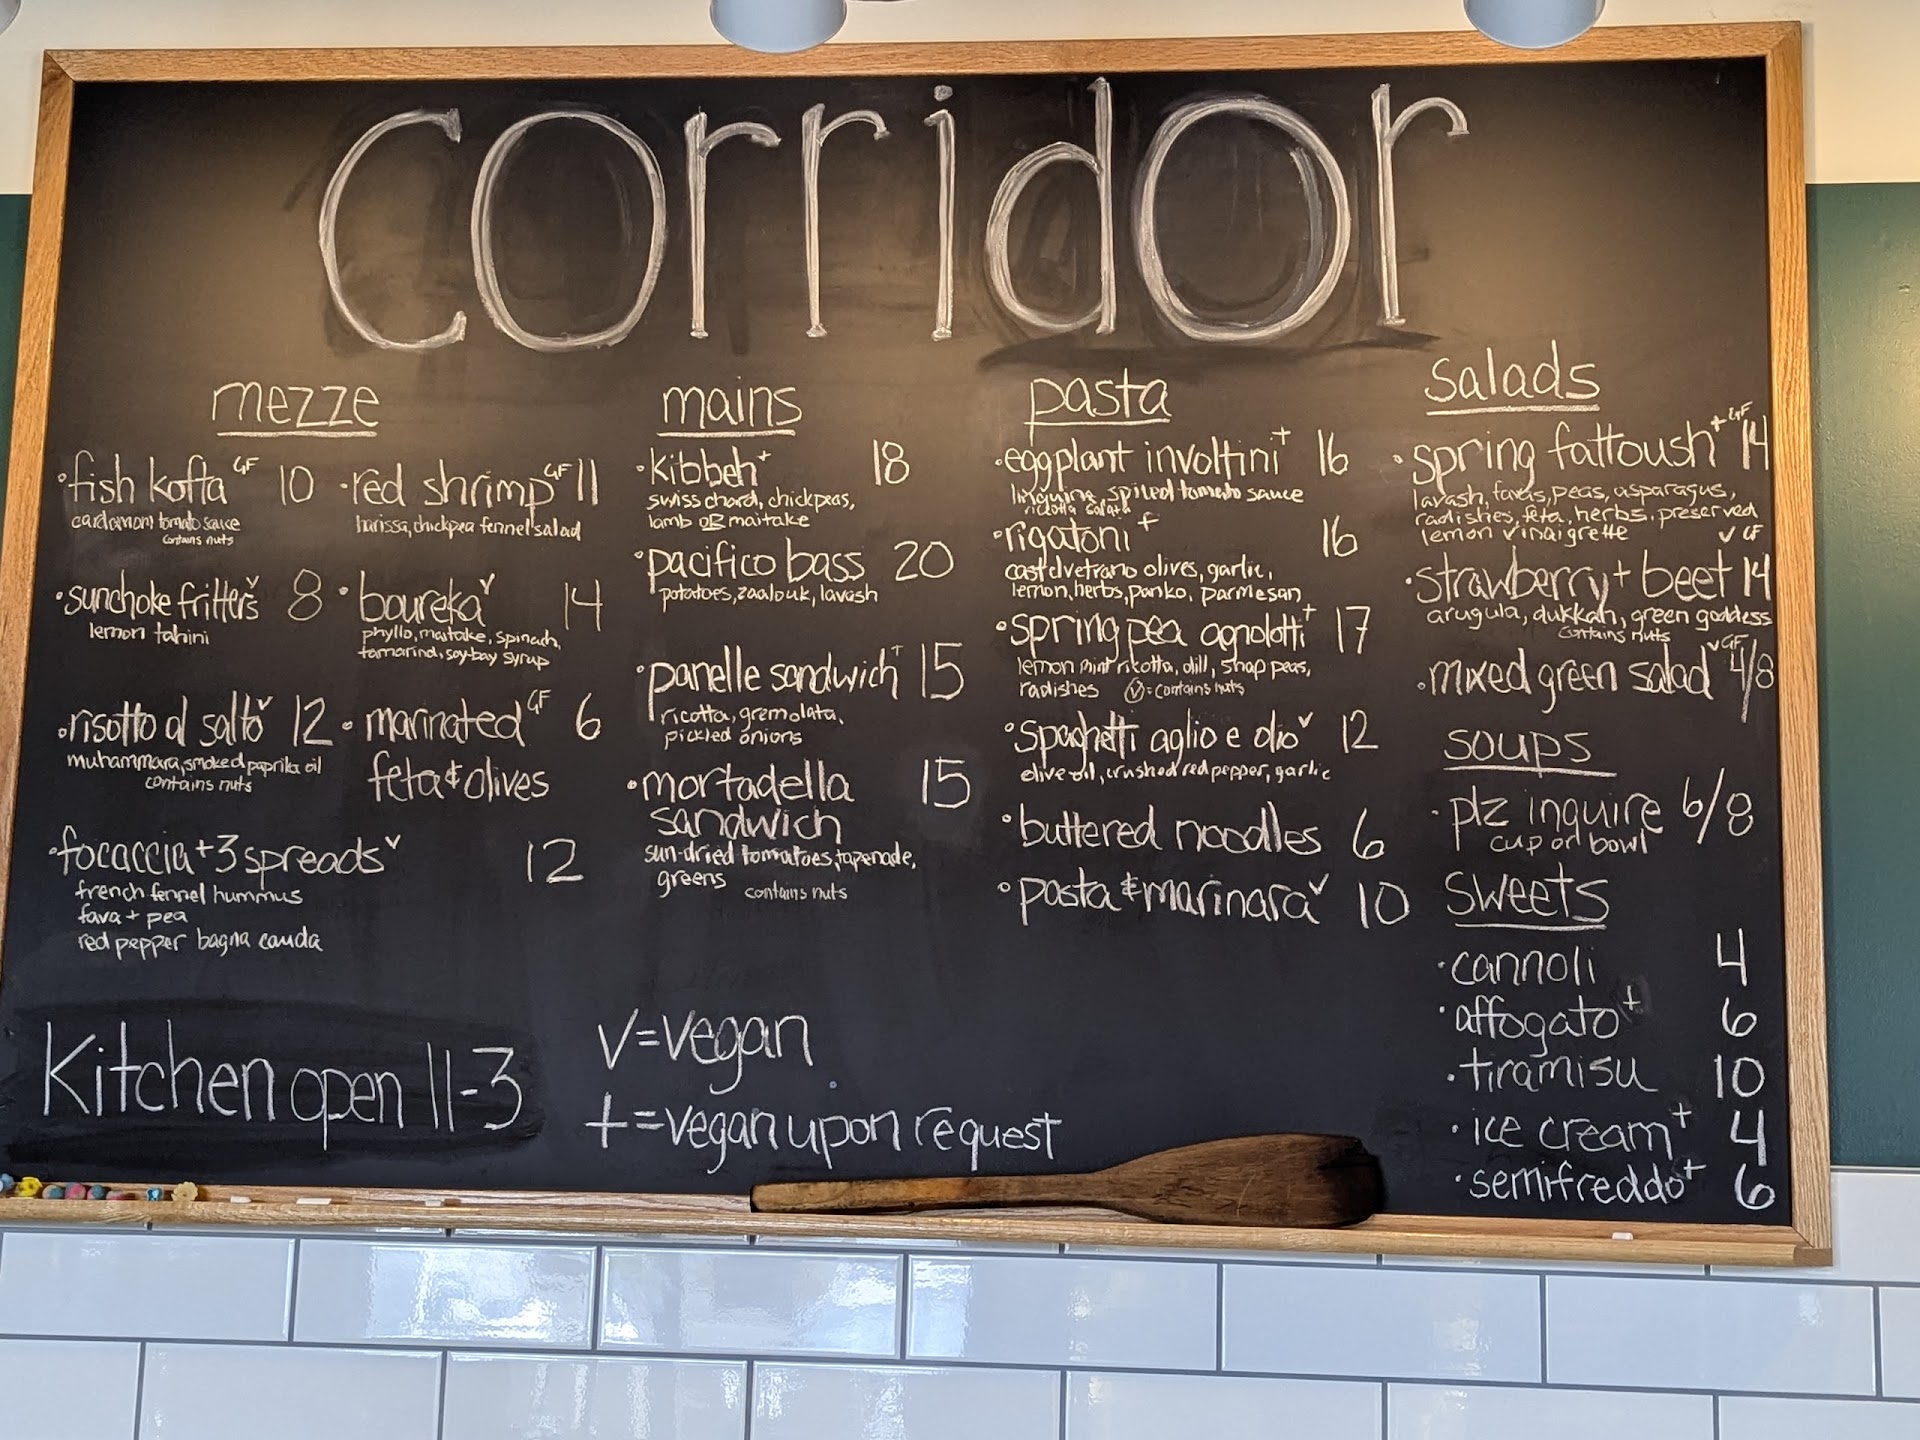 corridor
mezze
•fish kofta GF 10
cardamom tomato sauce
contains nuts
•red shrimp GF 11
harissa, chickpea fennel salad
•sunchoke fritters v 8
lemon tahini
•boureka v 14
phyllo, maitake, spinach,
tamarind, soy-bay syrup
•risotto al salto v 12
muhammara, smoked paprika oil
contains nuts
•marinated GF 6
feta & olives
•focaccia + 3 spreads v 12
french fennel hummus
fava + pea
red pepper bagna cauda
mains
•kibbeh + 18
swiss chard, chickpeas,
lamb OR maitake
•pacifico bass 20
potatoes, zaalouk, lavash
•panelle sandwich + 15
ricotta, gremolata,
pickled onions
•mortadella 15
sandwich
sun-dried tomatoes, tapenade,
greens
contains nuts
pasta
•eggplant involtini + 16
linguine, spiced tomato sauce
ricotta salata
•rigatoni + 16
castelvetrano olives, garlic,
lemon, herbs, panko, parmesan
•spring pea agnolotti + 17
lemon mint ricotta, dill, snap peas,
radishes (v)=contains nuts
•spaghetti aglio e olio v 12
olive oil, crushed red pepper, garlic
•buttered noodles 6
•pasta & marinara v 10
salads
•spring fattoush + GF 14
lavash, favas, peas, asparagus,
radishes, feta, herbs, preserved
lemon vinaigrette
•strawberry + beet v GF 14
arugula, dukkah, green goddess
contains nuts
•mixed green salad v GF 4/8
soups
•plz inquire 6/8
cup or bowl
sweets
•cannoli 4
•affogato + 6
•tiramisu 10
•ice cream + 4
•semifreddo + 6
Kitchen open 11-3
v=vegan
+=vegan upon request